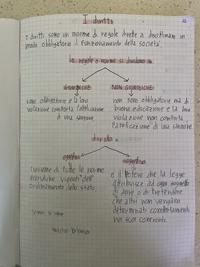 I diritti
I diritti sono un insieme di regole dirette a disciplinare in
modo obbligatorio il funzionamento della società.
le regole o norme si dividono in
GIURIDICHE NON GIURIDICHE
sono obbligatorie e la loro
violazione comporta l'attuazione
di una sanzione
non sono obbligatorie ma di
buona educazione e la loro
violazione non comporta
l'attuazione di una sanzione.
diritto
oggettivo soggettivo
l'insieme di tutte le norme
giuridiche vigenti nell'
ordinamento dello stato
è il potere che la legge
attribuisce ad ogni soggetto
di fare o di pretendere
che altri non vengano
determinati comportamenti
nei suoi confronti.